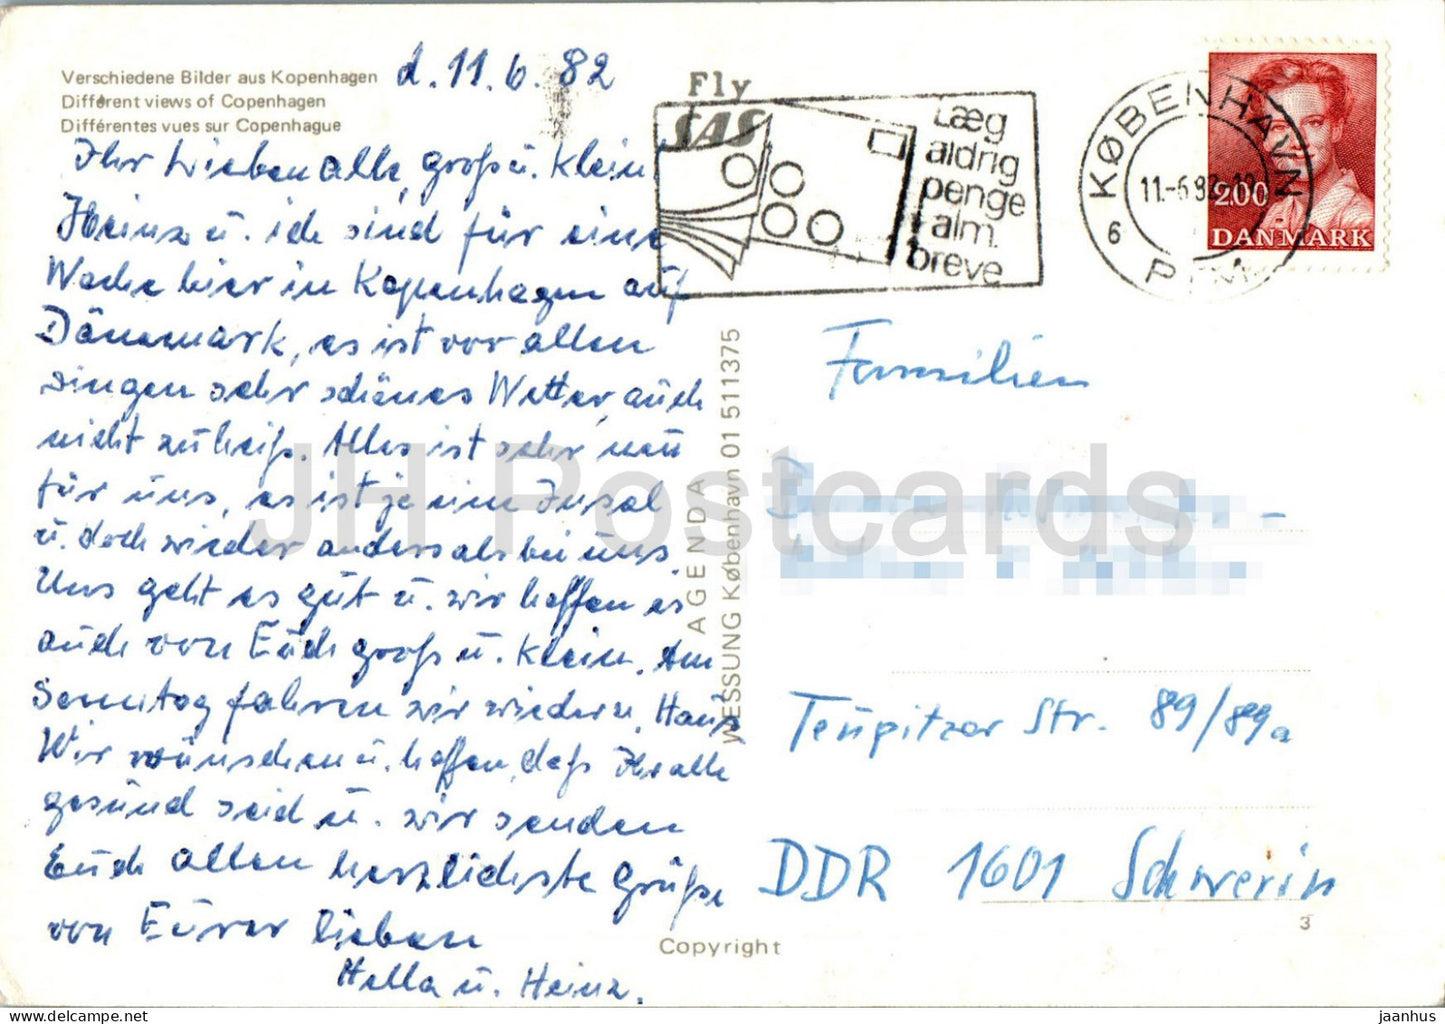 Verschiedene Bilder aus Kopenhagen
Different views of Copenhagen
Différentes vues sur Copenhague
d. 11.6.82
Ihr Lieben alle, groß u. klein
Heinz u. ich sind für eine
Woche hier in Kopenhagen auf
Dänemark, es ist vor allen
Dingen sehr schönes Wetter, auch
nicht zu heiß. Alles ist sehr neu
für uns, es ist je eine Insel
u. doch wieder anders als bei uns.
Uns geht es gut u. wir hoffen es
auch von Euch groß u. klein. Am
Sonntag fahren wir wieder n. Haus
Wir wünschen u. hoffen, daß Ihr alle
gesund seid u. wir senden
Euch allen herzlichste Grüße
von Eurer lieben
Hella u. Heinz.
Fly
SAS
Læg
aldrig
penge
i alm.
breve
KØBENHAVN
11.-6.82
6
2.00
DANMARK
AGENDA
WESSUNG København 01 511375
Familien
Teupitzer Str. 89/89a
DDR 1601 Schwerin
3
Copyright
JH Postcards
jaanhus | eBay